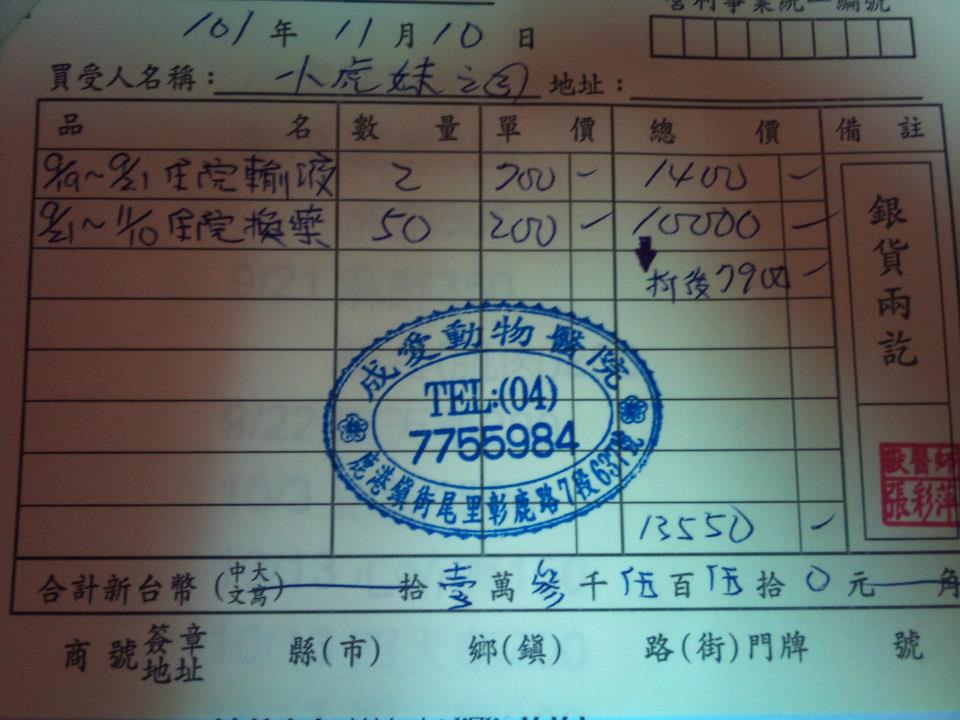 營利事業統一編號
101年 11月 10日
買受人名稱: 小虎妹之 地址:
品名 數量 單價 總價 備註
9/19~9/21 住院輸液 2 700- 1400-
9/21~11/10 住院換藥 50 200- 10000-
折後7900-
銀貨兩訖
成愛動物醫院
TEL:(04)
7755984
鹿港鎮街尾里彰鹿路7段637號
獸醫師
張彩萍
13550-
合計新台幣(中文大寫) 拾壹萬參千伍百伍拾0元 角
商號簽章地址 縣(市) 鄉(鎮) 路(街)門牌 號